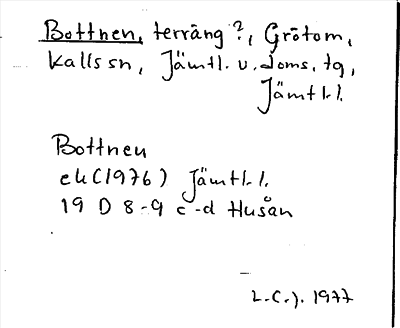 Bottnen, terräng?, Grötom,
Kalls sn, Jämtl. v. doms. tg,
Jämtl. l.
Bottnen
ek (1976) Jämtl. l.
19 D 8-9 c-d Husån
L.C.J. 1977